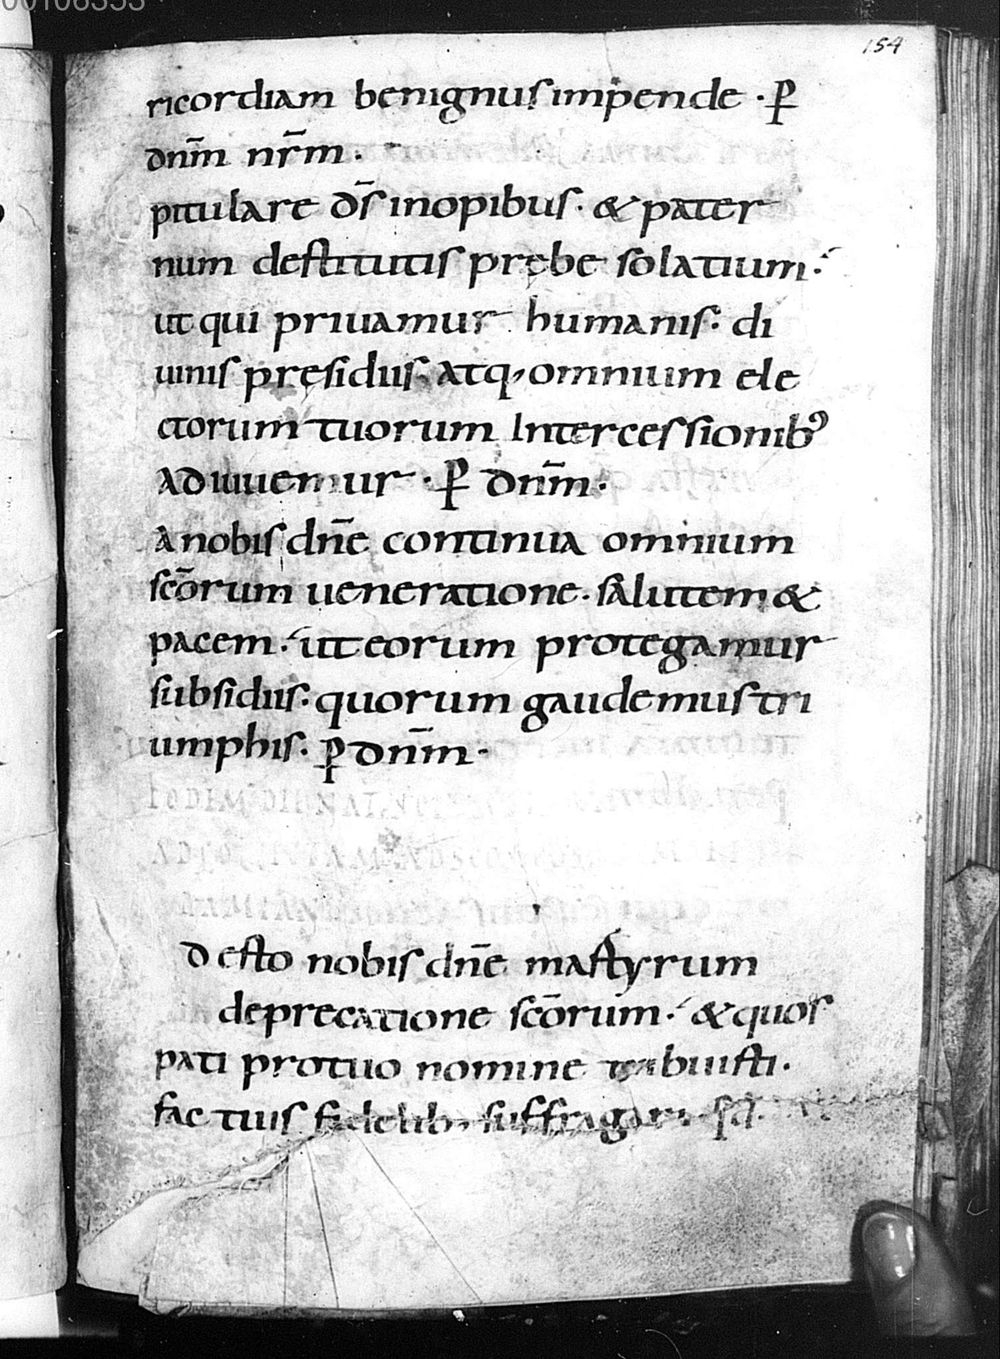 00106353
154
ricordiam benignus impende · P̄
dnm̄ nr̄m ·
pitulare ds̄ inopibus · & pater
num destitutis prębe solatium ·
ut qui priuamur humanis · di
uinis pręsidiis · atq· omnium ele
ctorum tuorum Intercessionibꝰ
adiuuemur · P̄ dnm̄ ·
A nobis dn̄e continua omnium
scōrum ueneratione · salutem &
pacem · ut eorum protegamur
subsidiis · quorum gaudemus tri
umphis · p̄ dnm̄ ·
desto nobis dn̄e martyrum
deprecatione scōrum · & quos
pati pro tuo nomine tribuisti ·
fac tuis fidelib· suffragari